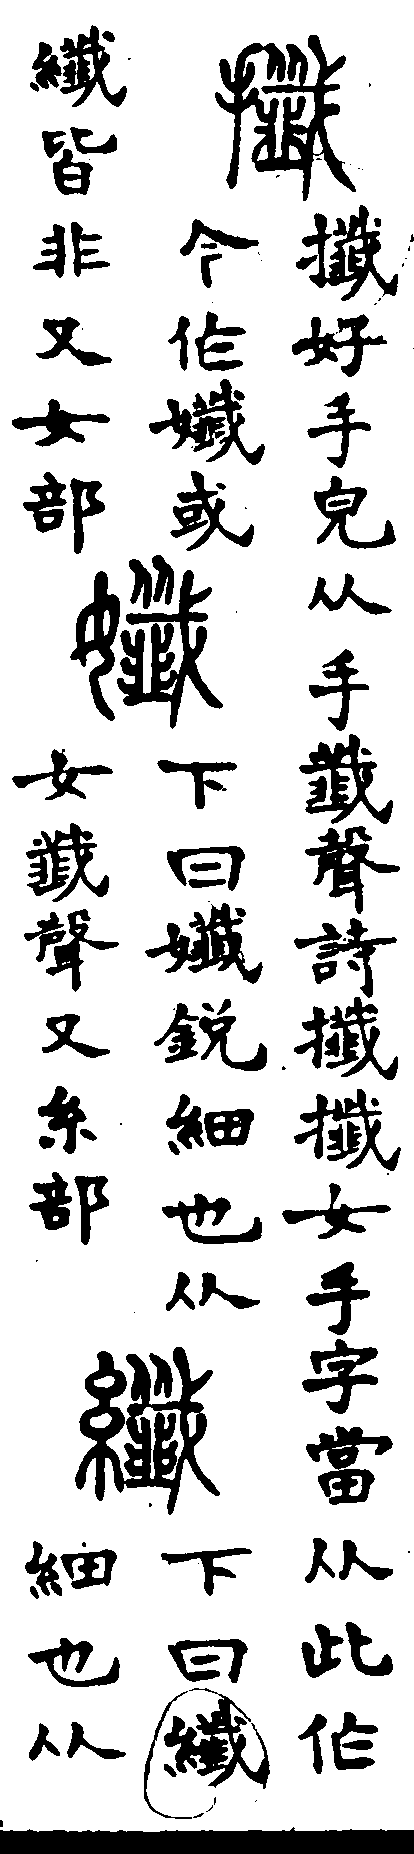 攕
攕好手皃从手韱聲詩攕攕女手字當从此作
今作孅或
纖皆非又女部
孅
下曰孅鋭細也从
女韱聲又糸部
纖
下曰纖
細也从